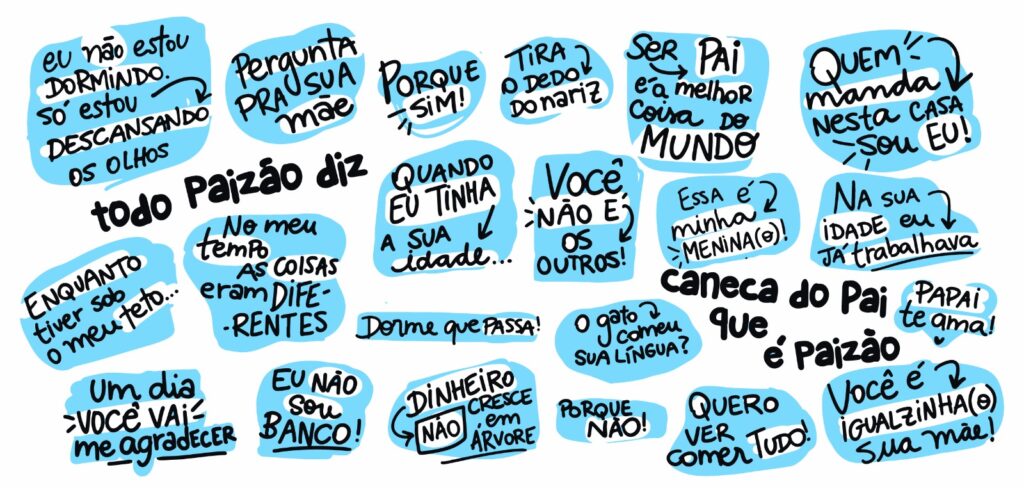 eu não estou
DORMINDO.
só estou
DESCANSANDO
OS OLHOS
Pergunta
PRA SUA
mãe
PORQUE
SIM!
TIRA
O DEDO
DO NARIZ
SER PAI
É A melhoR
coisa DO
MUNDO
QUEM
manda
Nesta CASA
Sou EU!
todo Paizão diz
QUANDO
EU TINHA
A SUA
idade...
VOCÊ
NÃO É
OS
OUTROS!
ESSA É
minha
MENINA(O)!
NA SUA
IDADE eu
JÁ trabalhava
ENQUANTO
tiver sob
o meu teto...
No meu
tempo
AS COISAS
eram DIFE-
-RENTES
Dorme que PASSA!
O gato
comeu
SUA LÍNGUA?
caneca do Pai
que
é Paizão
PAPAI
te ama!
Um dia
VOCÊ VAI
me agradecer
EU NÃO
sou
BANCO!
DINHEIRO
NÃO CRESCE
em
ÁRVORE
PORQUE
NÃO!
QUERO
VER
comer TUDO!
Você é
iGUALZINHA(O)
Sua mãe!